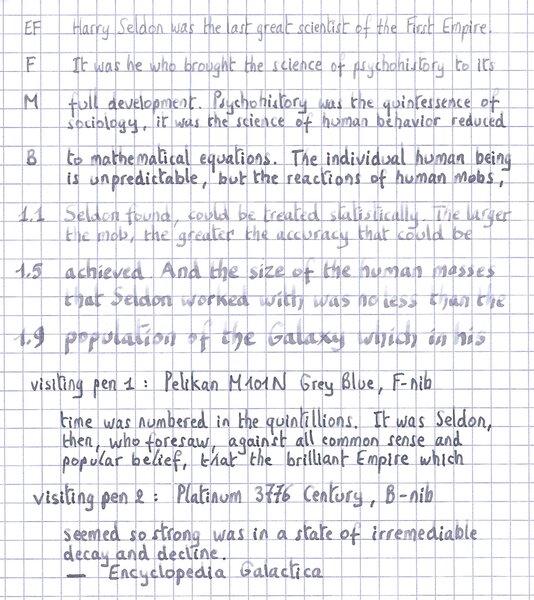 EF Harry Seldon was the last great scientist of the First Empire.
F It was he who brought the science of psychohistory to its
M full development. Psychohistory was the quintessence of
sociology, it was the science of human behavior reduced
B to mathematical equations. The individual human being
is unpredictable, but the reactions of human mobs,
1.1 Seldon found, could be treated statistically. The larger
the mob, the greater the accuracy that could be
1.5 achieved. And the size of the human masses
that Seldon worked with was no less than the
1.9 population of the Galaxy which in his
visiting pen 1 : Pelikan M101N Grey Blue, F-nib
time was numbered in the quintillions. It was Seldon,
then, who foresaw, against all common sense and
popular belief, that the brilliant Empire which
visiting pen 2 : Platinum 3776 Century, B-nib
seemed so strong was in a state of irremediable
decay and decline.
— Encyclopedia Galactica